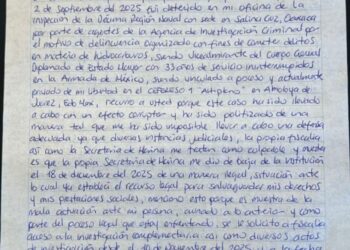 2 de septiembre del 2025 fui detenido en mi oficina de la
Inspección de la Décima Región Naval con sede en Salina Cruz, Oaxaca
por parte de agentes de la Agencia de Investigación Criminal por
el motivo de delincuencia organizada con fines de cometer delitos
en materia de hidrocarburos, siendo Vicealmirante del Cuerpo General
Diplomado de Estado Mayor con 33 años de servicio ininterrumpidos
en la Armada de México, siendo vinculado a proceso y actualmente
privado de mi libertad en el CEFERESO 1 "Altiplano" en Almoloya de
Juárez, Edo. Mex, recurro a usted porque este caso ha sido llevado
a cabo con un efecto corruptor y ha sido politizado de una
manera tal que me ha sido imposible llevar a cabo una defensa
adecuada ya que diversas instancias judiciales, la propia fiscalía
así como la Secretaría de Marina me tratan como culpable y muestra
es que la propia Secretaría de Marina me dio de baja de la institución
el 18 de diciembre del 2025 de una manera ilegal, situación ante
lo cual ya entablé el recurso legal para salvaguardar mis derechos
y mis prestaciones sociales, menciono esto porque es muestra de la
mala actuación ante mi persona, aunado a lo anterior y como
parte del proceso legal que estoy enfrentando, se le solicitó a fiscalía
acceso a la investigación complementaria así como diversos actos
de investigación desde el 10 de noviembre del 2025